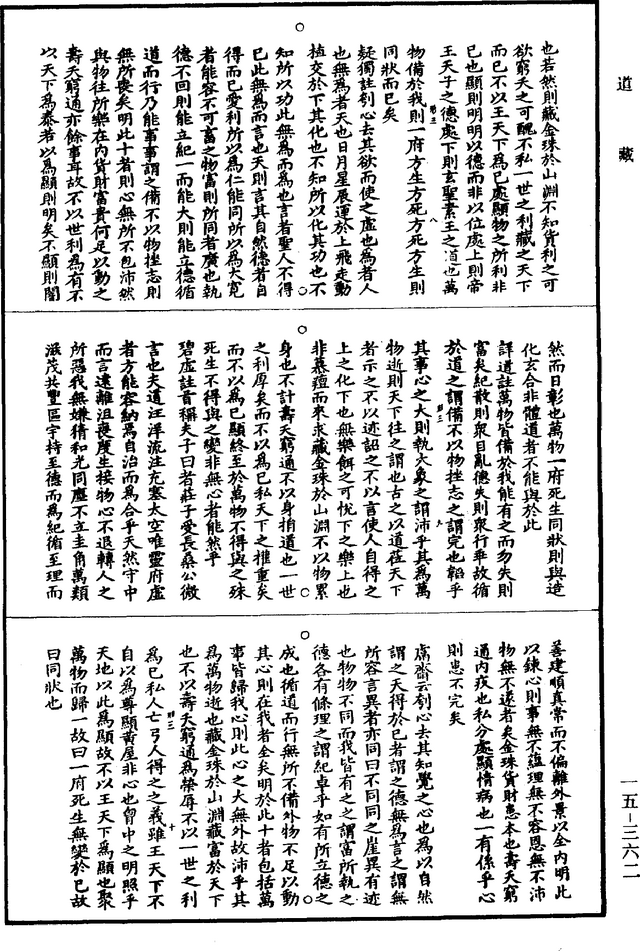 道藏
也若然則藏金珠於山淵不知貨利之可
欲窮天之可醜不私一世之利藏之天下
而已不以王天下為己處顯物之所利非
己也顯則明明以德而非以位處上則帝
王天子之德處下則玄聖素王之道也萬
物備於我則一府方生方死方死方生則
同狀而已矣
疑獨註刳心去其欲而使之虛也為者人
也無為者天也日月星辰運於上飛走動
植交於下其化也不知所以化其功也不
知所以功此無為而為也言者聖人不得
已此無為而言也天則言其自然德者自
得而已愛利所以為仁能同所以為大寬
者能容不可畜之物富則所同者廣也執
德不回則能立紀一而能大則能立德循
道而行乃能事事謂之備不以物挫志則
無所喪矣明此十者則心無所不包沛然
與物往所樂在內貨財富貴何足以動之
壽夭窮通亦餘事耳故不以世利為有不
以天下為泰若以為顯則明矣不顯則闇
然而日彰也萬物一府死生同狀則與造
化玄合非體道者不能與於此
詳道註萬物皆備於我能有之而勿失則
富矣紀散則衆目亂德失則衆行乖故循
於道之謂備不以物挫志之謂完也韜乎
其事心之大則執大象之謂沛乎其為萬
物逝則天下往之謂也古之以道莅天下
者示之不以迹詔之不以言使人自得之
上之化下也無樂餌之可悅下之樂上也
非慕羶而來求藏金珠於山淵不以物累
身也不計壽夭窮通不以身拍道也一世
之利厚矣而不以為己私天下之推重矣
而不以為己顯終至於萬物不得與之殊
死生不得與之變非無心者能然乎
碧虛註首稱夫子曰者莊子受長桑公微
言也夫道汪洋流注充塞太空唯靈府虛
者方能容納焉自治而為合乎天然守中
而言遠離沮喪度生接物心不退轉人之
所惡我無嫌猜和光同塵不立圭角萬類
滋茂共豐區宇持至德而為紀循至理而
善建順真常而不偏離外景以全內明此
以鍊心則事無不蘊理無不容恩無不沛
物無不遂者矣金珠貨財患本也壽夭窮
通內疚也私分處顯情病也一有係乎心
則患不完矣
鬳齋云刳心去其知覺之心也為以自然
謂之天得於己者謂之德無為言之謂無
所容言異者亦同曰不同同之崖異有迹
也物物不同而我皆有之之謂富所執之
德各有條理之謂紀卓乎如有所立德之
成也循道而行無所不備外物不足以動
其心則在我者全矣明於此十者包括萬
事皆歸我心則此心之大無外故沛乎其
為萬物逝也藏金珠於山藏富於天下
也不以壽夭窮通為榮辱不以一世之利
為己私人亡弓人得之之義雖王天下不
自以為尊顯黃屋非心也胷中之明照乎
天地以此為顯故不以王天下為顯也聚
萬物而歸一故曰一府死生無變於己故
曰同狀也
一五-三六二